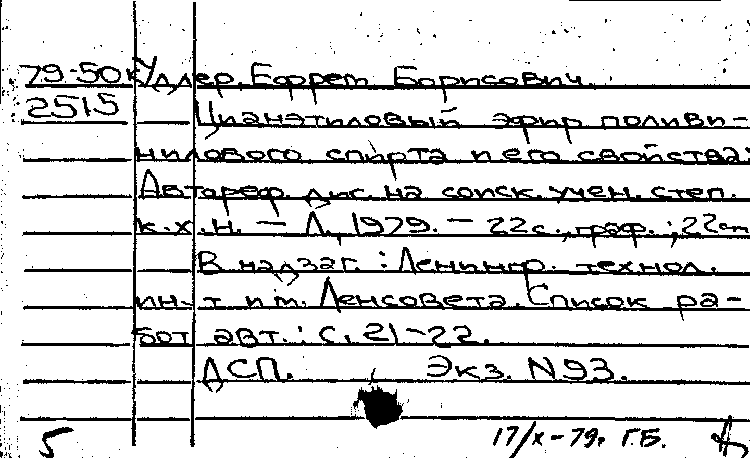 79-50к Уллер, Ефрет Борисович.
2515 Цианэтиловый эфир поливи-
нилового спирта и его свойства:
Автореф. дис. на соиск. учен. степ.
к.х.н. - Л., 1979. - 22 с., граф.; 22 см
В надзаг.: Ленингр. технол.
ин-т им. Ленсовета. Список ра-
бот авт.: с. 21-22.
ДСП. Экз. N 93.
5 17/X-79г. Г.Б.